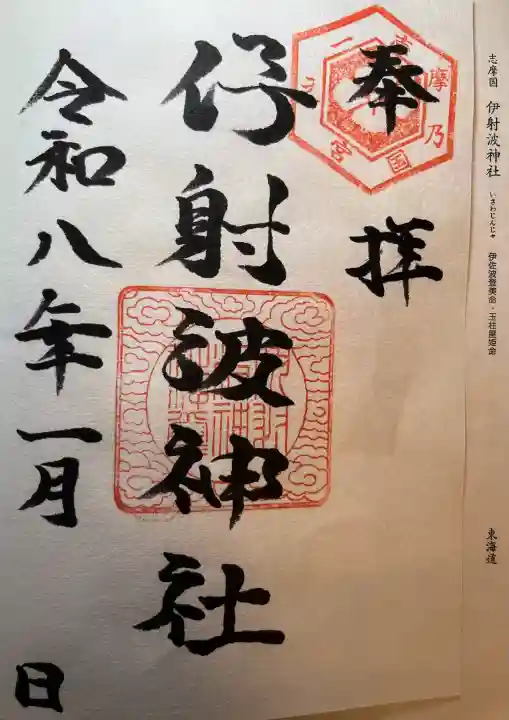 志摩国 伊射波神社 いさわじんじゃ 伊佐波登美命・玉柱屋姫命
東海道
奉拝
志摩乃国一之宮
伊射波神社
令和八年一月 日